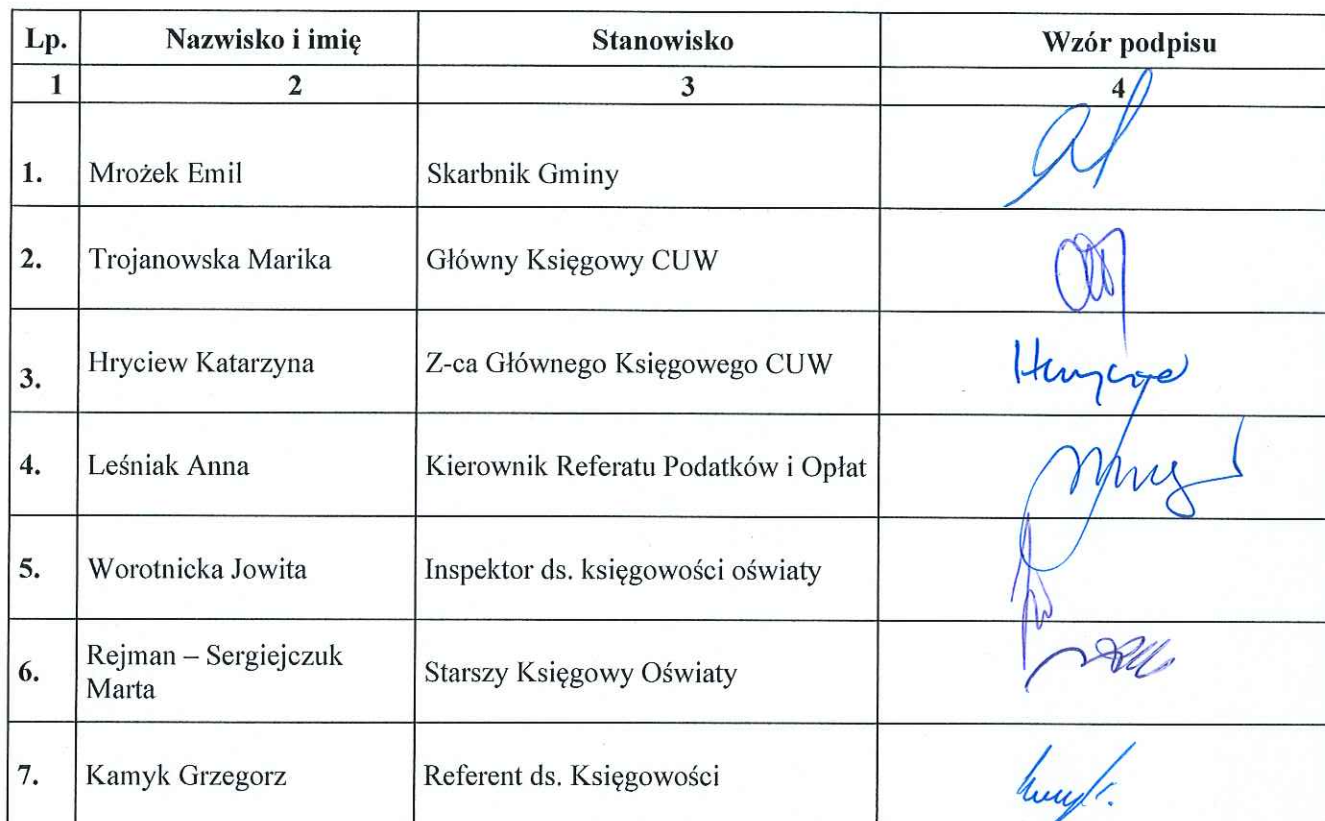 Lp. Nazwisko i imię Stanowisko Wzór podpisu
1 2 3 4
1. Mrożek Emil Skarbnik Gminy
2. Trojanowska Marika Główny Księgowy CUW
3. Hryciew Katarzyna Z-ca Głównego Księgowego CUW
4. Leśniak Anna Kierownik Referatu Podatków i Opłat
5. Worotnicka Jowita Inspektor ds. księgowości oświaty
6. Rejman – Sergiejczuk
Marta Starszy Księgowy Oświaty
7. Kamyk Grzegorz Referent ds. Księgowości